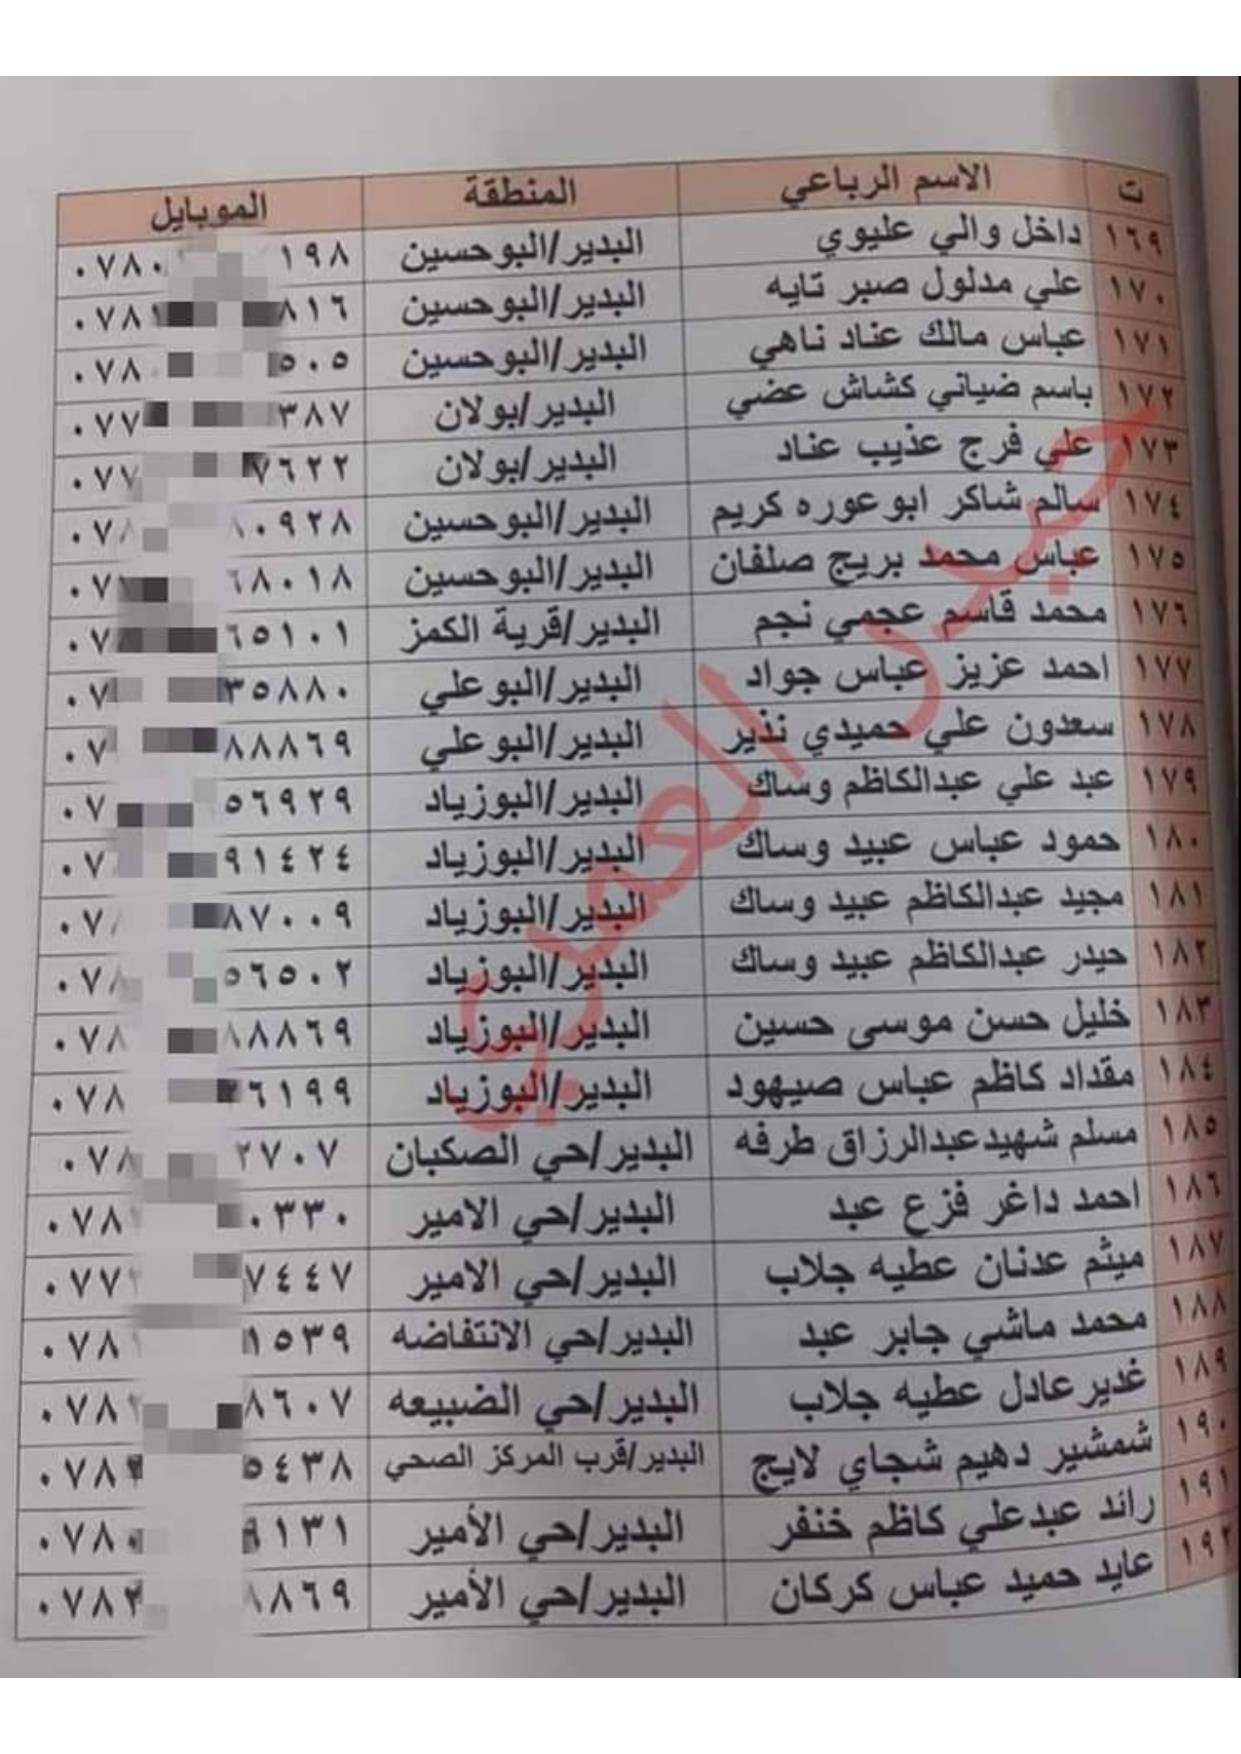 ت الاسم الرباعي المنطقة الموبايل
١٦٩ داخل والي عليوي البدير/البوحسين ٠٧٨٠ ١٩٨
١٧٠ علي مدلول صبر تايه البدير/البوحسين ٠٧٨ ٨١٦
١٧١ عباس مالك عناد ناهي البدير/البوحسين ٠٧٨ ٥٠٥
١٧٢ باسم ضياني كشاش عضي البدير/بولان ٠٧٧ ٣٨٧
١٧٣ علي فرج عذيب عناد البدير/بولان ٠٧٧ ٧٦٢٢
١٧٤ سالم شاكر ابوعوره كريم البدير/البوحسين ٠٧ ٠٩٢٨
١٧٥ عباس محمد بريج صلفان البدير/البوحسين ٠٧ ٨٠١٨
١٧٦ محمد قاسم عجمي نجم البدير/قرية الكمز ٠٧ ٦٥١٠١
١٧٧ احمد عزيز عباس جواد البدير/البوعلي ٠٧ ٣٥٨٨٠
١٧٨ سعدون علي حميدي نذير البدير/البوعلي ٠٧ ٨٨٨٦٩
١٧٩ عبد علي عبدالكاظم وساك البدير/البوزياد ٠٧ ٥٦٩٢٩
١٨٠ حمود عباس عبيد وساك البدير/البوزياد ٠٧ ٩١٤٢٤
١٨١ مجيد عبدالكاظم عبيد وساك البدير/البوزياد ٠٧ ٨٧٠٠٩
١٨٢ حيدر عبدالكاظم عبيد وساك البدير/البوزياد ٠٧ ٥٦٥٠٢
١٨٣ خليل حسن موسى حسين البدير/البوزياد ٠٧٨ ٨٨٦٩
١٨٤ مقداد كاظم عباس صيهود البدير/البوزياد ٠٧٨ ٦١٩٩
١٨٥ مسلم شهيدعبدالرزاق طرفه البدير/حي الصكبان ٠٧٨ ٢٧٠٧
١٨٦ احمد داغر فزع عبد البدير/حي الامير ٠٧٨ ٠٣٣٠
١٨٧ ميثم عدنان عطيه جلاب البدير/حي الامير ٠٧٧ ٧٤٤٧
١٨٨ محمد ماشي جابر عبد البدير/حي الانتفاضه ٠٧٨ ١٥٣٩
١٨٩ غديرعادل عطيه جلاب البدير/حي الضبيعه ٠٧٨ ٨٦٠٧
١٩٠ شمشير دهيم شجاي لايج البدير/قرب المركز الصحي ٠٧٨ ٥٤٣٨
١٩١ رائد عبدعلي كاظم خنفر البدير/حي الأمير ٠٧٨ ٩١٣١
١٩٢ عايد حميد عباس كركان البدير/حي الأمير ٠٧٨٢ ٨٨٦٩